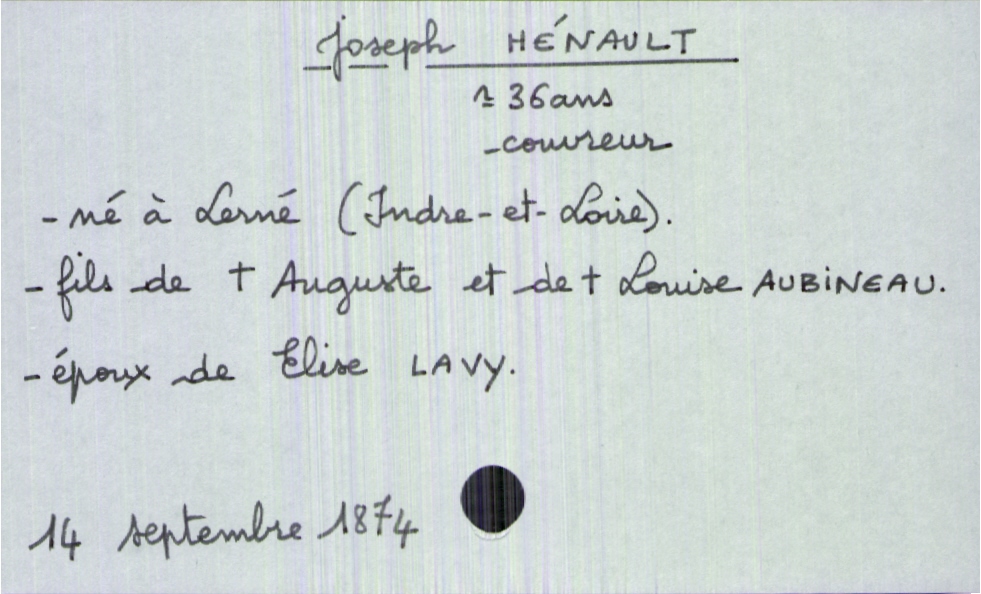 Joseph HÉNAULT
≃ 36 ans
- couvreur
- né à Lerné (Indre-et-Loire).
- fils de † Auguste et de † Louise AUBINEAU.
- époux de Elise LAVY.
14 septembre 1874